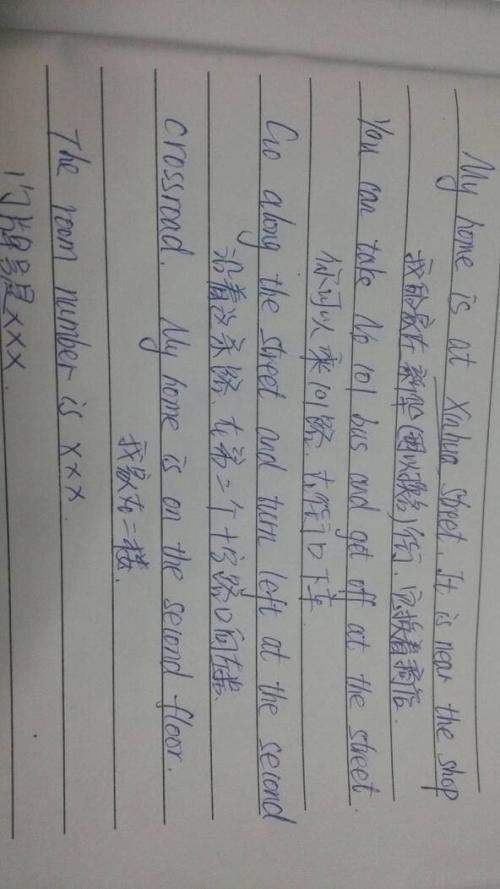 My home is at Xinhua Street. It is near the shop
我的家在新华街
You can take No 101 bus and get off at the street
你可以乘101路,在街口下车
Go along the street and turn left at the second
沿着这条路,在第二个十字路口向左
crossroad. My home is on the second floor.
我家在二楼.
The room number is xxx
门牌号是xxx.